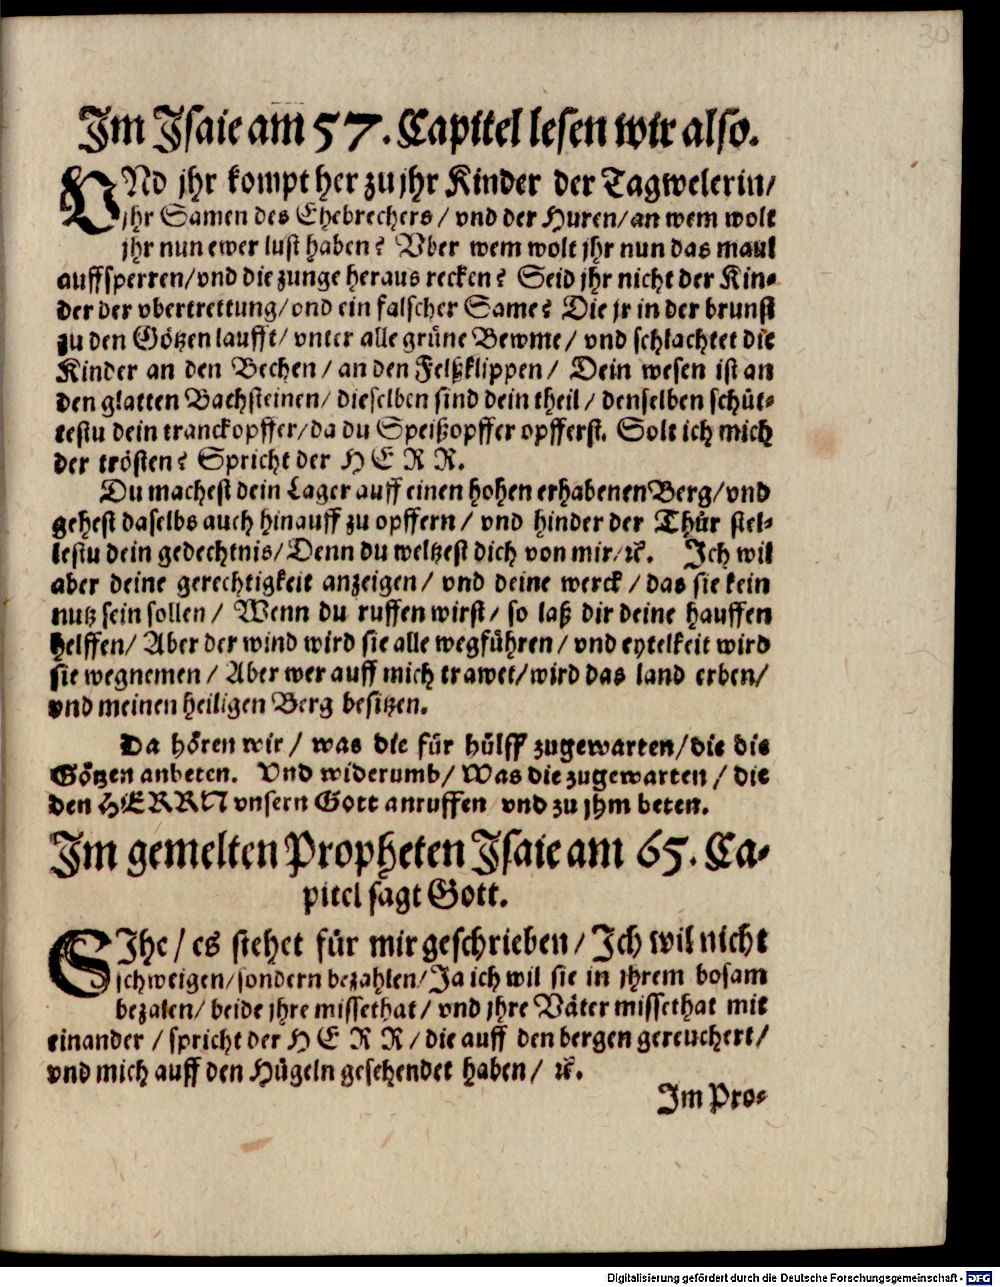 30
Im Isaie am 57. Capitel lesen wir also.
VNd jhr kompt her zu jhr Kinder der Tagwelerin/
jhr Samen des Ehebrechers/ vnd der Huren/ an wem wolt
jhr nun ewer lust haben? Vber wem wolt jhr nun das maul
auffsperren/ vnd die zunge heraus recken? Seid jhr nicht der Kin-
der der vbertrettung/ vnd ein falscher Same? Die jr in der brunst
zu den Götzen laufft/ vnter alle grüne Bewme/ vnd schlachtet die
Kinder an den Bechen/ an den Felßklippen/ Dein wesen ist an
den glatten Bachsteinen/ dieselben sind dein theil/ denselben schüt-
testu dein tranckopffer/ da du Speißopffer opfferst. Solt ich mich
der trösten? Spricht der HERR.
Du machest dein Lager auff einen hohen erhabenen Berg/ vnd
gehest daselbs auch hinauff zu opffern/ vnd hinder der Thür stel-
lestu dein gedechtnis/ Denn du weltzest dich von mir/ ꝛc. Ich wil
aber deine gerechtigkeit anzeigen/ vnd deine werck/ das sie kein
nutz sein sollen/ Wenn du ruffen wirst/ so laß dir deine hauffen
helffen/ Aber der wind wird sie alle wegführen/ vnd eytelkeit wird
sie wegnemen/ Aber wer auff mich trawet/ wird das land erben/
vnd meinen heiligen Berg besitzen.
Da hören wir/ was die für hülff zugewarten/ die die
Götzen anbeten. Vnd widerumb/ Was die zugewarten/ die
den HERRN vnsern Gott anruffen vnd zu jhm beten.
Im gemelten Propheten Isaie am 65. Ca-
pitel sagt Gott.
SIhe/ es stehet für mir geschrieben/ Ich wil nicht
schweigen/ sondern bezahlen/ Ja ich wil sie in jhrem bosam
bezalen/ beide jhre missethat/ vnd jhre Väter missethat mit
einander/ spricht der HERR/ die auff den bergen gereuchert/
vnd mich auff den Hügeln geschendet haben/ ꝛc.
Im Pro-
Digitalisierung gefördert durch die Deutsche Forschungsgemeinschaft - DFG